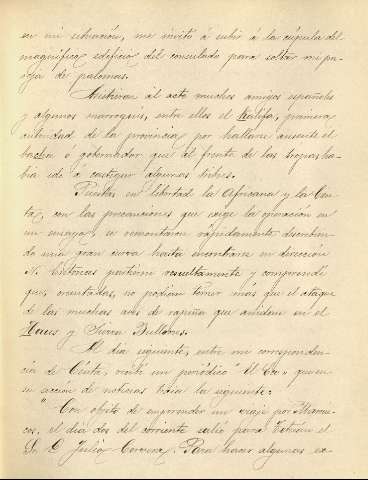 en mi situación, me invitó á subir á la cúpula del
magnífico edificio del consulado para soltar mi pa-
reja de palomas.
Asistieron al acto muchos amigos españoles
y algunos marroquís, entre ellos el Kalifa, primera
autoridad de la provincia por hallarse ausente el
bacha ó gobernador que al frente de las tropas ha-
bia ido á castigar algunas kabilas.
Puestas en libertad la Africana y la Ceu-
ta, con las precauciones que exige la operación en
un ensayo, se remontaron rápidamente describien-
do una gran curva hasta encontrarse en dirección
N. Entonces partieron resueltamente y comprendí
que, orientadas, no podian temer más que el ataque
de las muchas aves de rapiña que anidan en el
Haus y Sierra Bullones.
Al dia siguiente, entre mi corresponden-
cia de Ceuta, recibí un periódico "El Eco" que en
su sección de noticias traia la siguiente:
"Con objeto de emprender un viaje por Marrue-
cos, el dia dos del corriente salió para Tetuán el
Sr. D. Julio Cervera. Para hacer algunas ex-